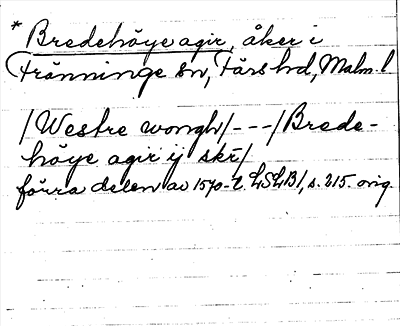 * Bredehöye agir, åker i
Tranninge sn, Färs hd, Malm. l
/Westre wongh/ - - - /Brede-
höye agir ij skr/
förra delen av 1570-t. LSLB1, s. 215. orig.